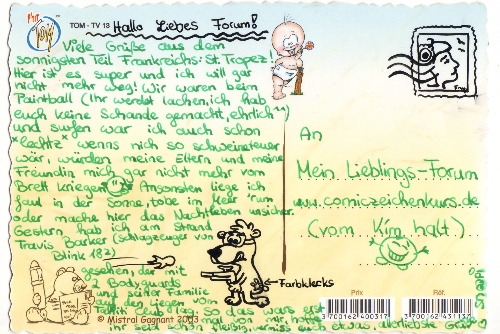 TOM - TV 13
Hallo Liebes Forum!
Viele Grüße aus dem
sonnigsten Teil Frankreichs: St. Tropez!
Hier ist es super und ich will gar
nicht mehr weg! Wir waren beim
Paintball (Ihr werdet lachen, ich hab
euch keine Schande gemacht, ehrlich ^^)
und surfen war ich auch schon
*lechtz* wenns nich so schweineteuer
wär, würden meine Eltern und meine
Freundin mich gar nicht mehr vom
Brett kriegen Ansonsten liege ich
faul in der Sonne, tobe im Meer rum
oder mache hier das Nachtleben unsicher.
Gestern hab ich am Strand
Travis Barker (schlagzeuger von
Blink 182)
gesehen, der mit
2 Bodyguards
und seiner Familie
auf den Liegen vom
Tahiti Club lag. So das
An
Mein Lieblings-Forum
www.comiczeichenkurs.de
(vom Kim halt)
Farbklecks
© Mistral Gagnant 2003
Prix
Réf.
3 700162 400317
3 700162 431137